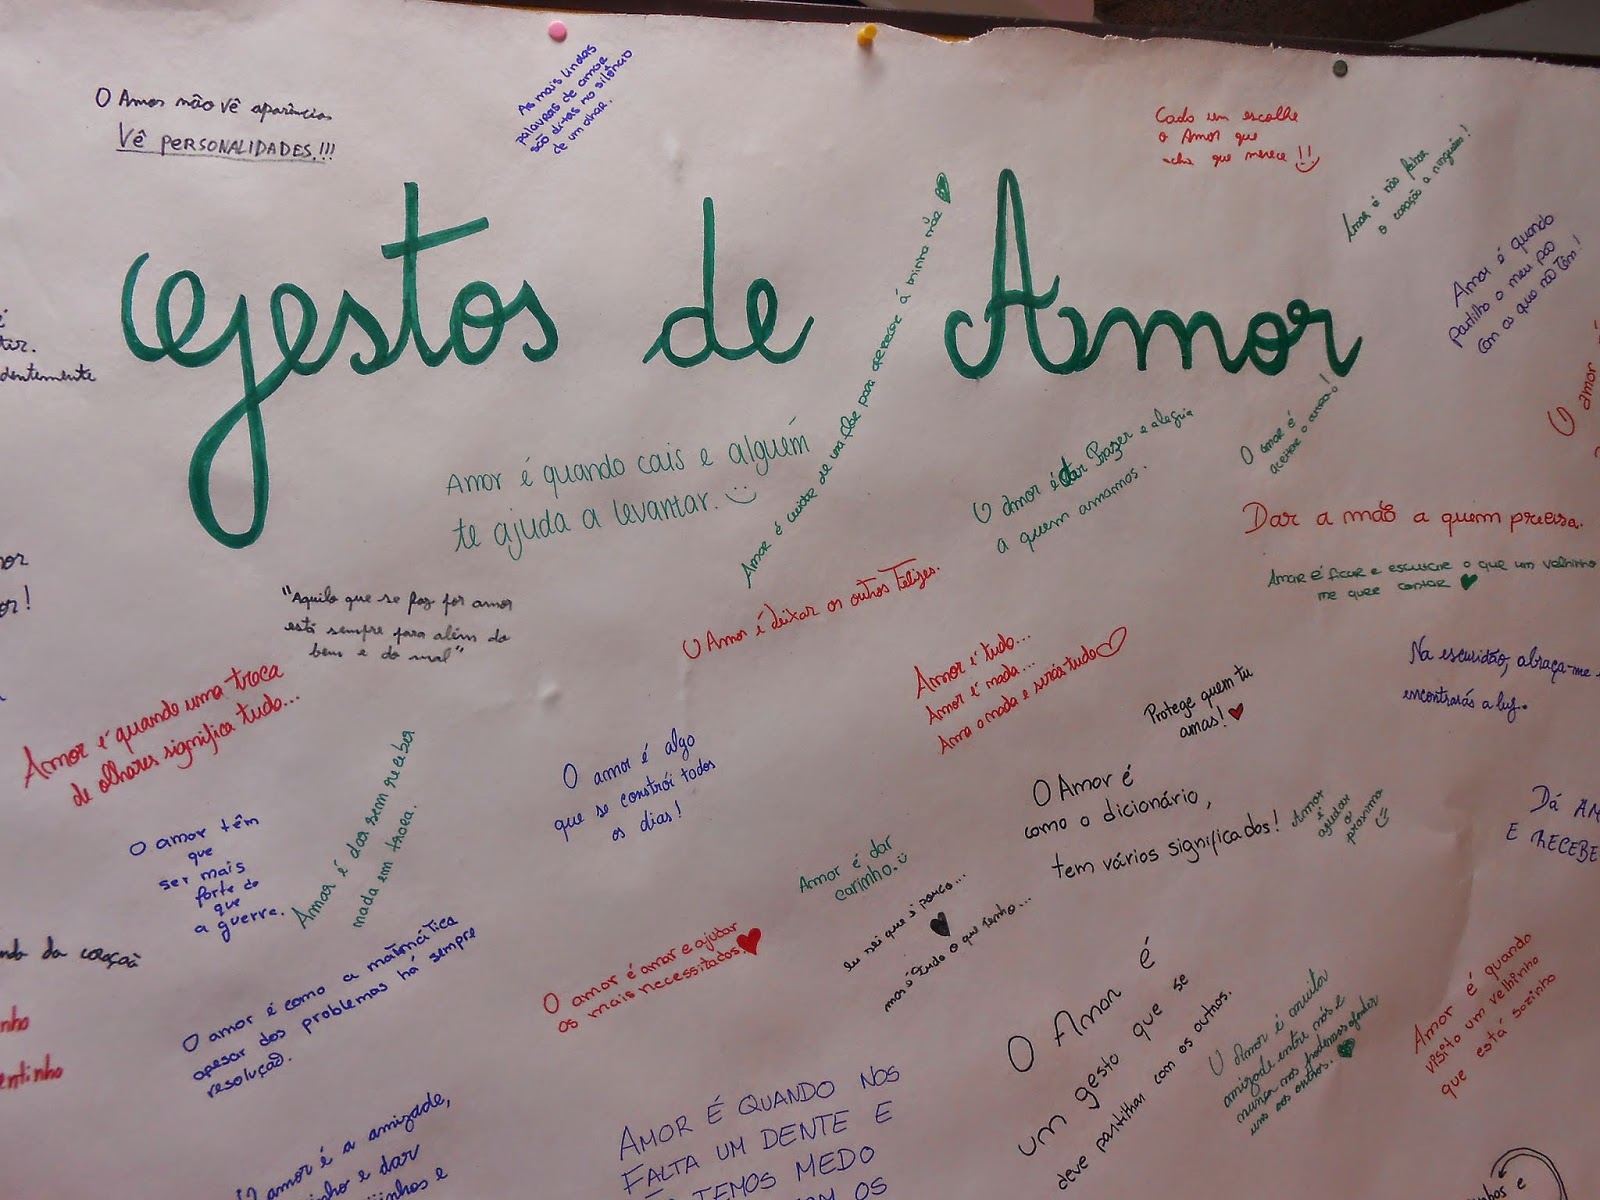 O Amor não vê aparências
Vê PERSONALIDADES.!!!
As mais lindas
palavras de amor
são ditas no silêncio
de um olhar.
Cada um escolhe
o Amor que
acha que merece !!
Amar é não fechar
o coração a ninguém!
Amor é quando
partilho o meu pão
com os que não têm!
Gestos de Amor
O amor
dentemente
Amor é quando cais e alguém
te ajuda a levantar.
Amor é cuidar de uma flor para oferecer à minha mãe
O amor é dar Prazer e alegria
a quem amamos.
O amor é
aceitar o outro!
Dar a mão a quem precisa.
Amar é ficar e escutar o que um velhinho
me quer contar
"Aquilo que se faz por amor
está sempre para além do
bem e do mal"
O Amor é deixar os outros Felizes.
Amor é tudo...
Amor é nada...
Ama o nada e serás tudo
Protege quem tu
amas!
Na escuridão, abraça-me
encontrarás a luz.
Amor é quando uma troca
de olhares significa tudo...
Amar é dar sem receber
nada em troca.
O amor é algo
que se constrói todos
os dias!
O Amor é
como o dicionário,
tem vários significados!
Amor
é
ajudar
o
próximo
Dá AM
E RECEBE
O amor têm
que
ser mais
forte do
que
a guerra.
Amor é dar
carinho.
eu sei que é pouco...
mas é tudo o que tenho...
O amor é amar e ajudar
os mais necessitados.
O amor é como a matemática
apesar dos problemas há sempre
resolução.
do coração
O Amor é
um gesto que se
deve partilhar com os outros.
O Amor é muita
amizade entre nós e
nunca nos podemos ofender
uns aos outros.
Amor é quando
visito um velhinho
que está sozinho
O amor é a amizade,
e dar
e
AMOR É QUANDO NOS
FALTA UM DENTE E
TEMOS MEDO
OS